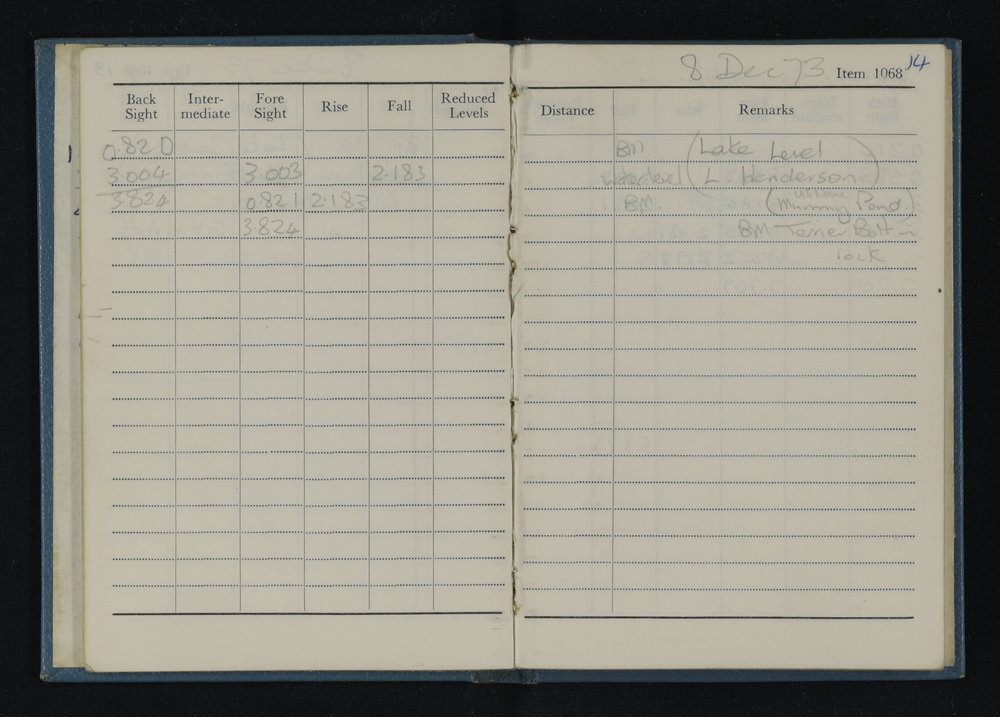 8 Dec 73 Item 1068 14
Back Sight Inter-mediate Fore Sight Rise Fall Reduced Levels Distance Remarks
0.820 BM (Lake Level
3.004 3.003 2.183 Water level L Henderson)
3.824 0.821 2.183 BM (Mummy Pond.)
3.824 BM
rock